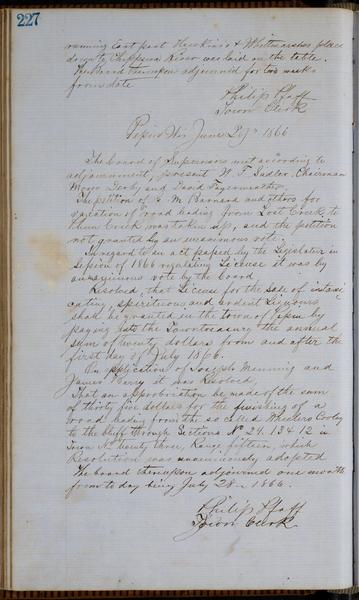 227
running East past Hawkins & Whitmarshes place
down to Chippewa River was laid on the table.
The Board thereupon adjourned for two weeks
from date
Philip Pfaff
Town Clerk
Pepin Wis June 29th 1866
The board of Supervisors met according to
adjournment, present W. F. Sadler, Chairman
and David
The petition of M Barnard and others for
vacation of road leading from Lost Creek to
Creek was taken up, and the petition
not granted by an unanimous vote.
In regard to an act passed by the Legislature in
Session of 1866 regulating License it was by
unanymous vote by the Board
Resolved, that License for the Sale of intoxi
cating, spirituous and ardent Liquours
shall be granted in the town of Pepin by
paying into the Towntreasury the annual
sum of twenty dollars from and after the
first day of July 1866.
On application of Joseph Manning and
James it was Resolved,
That an approbriation be made of the sum
of thirty five dollars for the finishing of a
road leading from the so called Wheelers Cooley
to the bluff through Sections No 24. 13 & 12 in
Town No twenty three, Range fifteen, which
Resolution was unanimously adopted
The board thereupon adjourned one month
from to day being July 28th 1866.
Philip Pfaff
Town Clerk